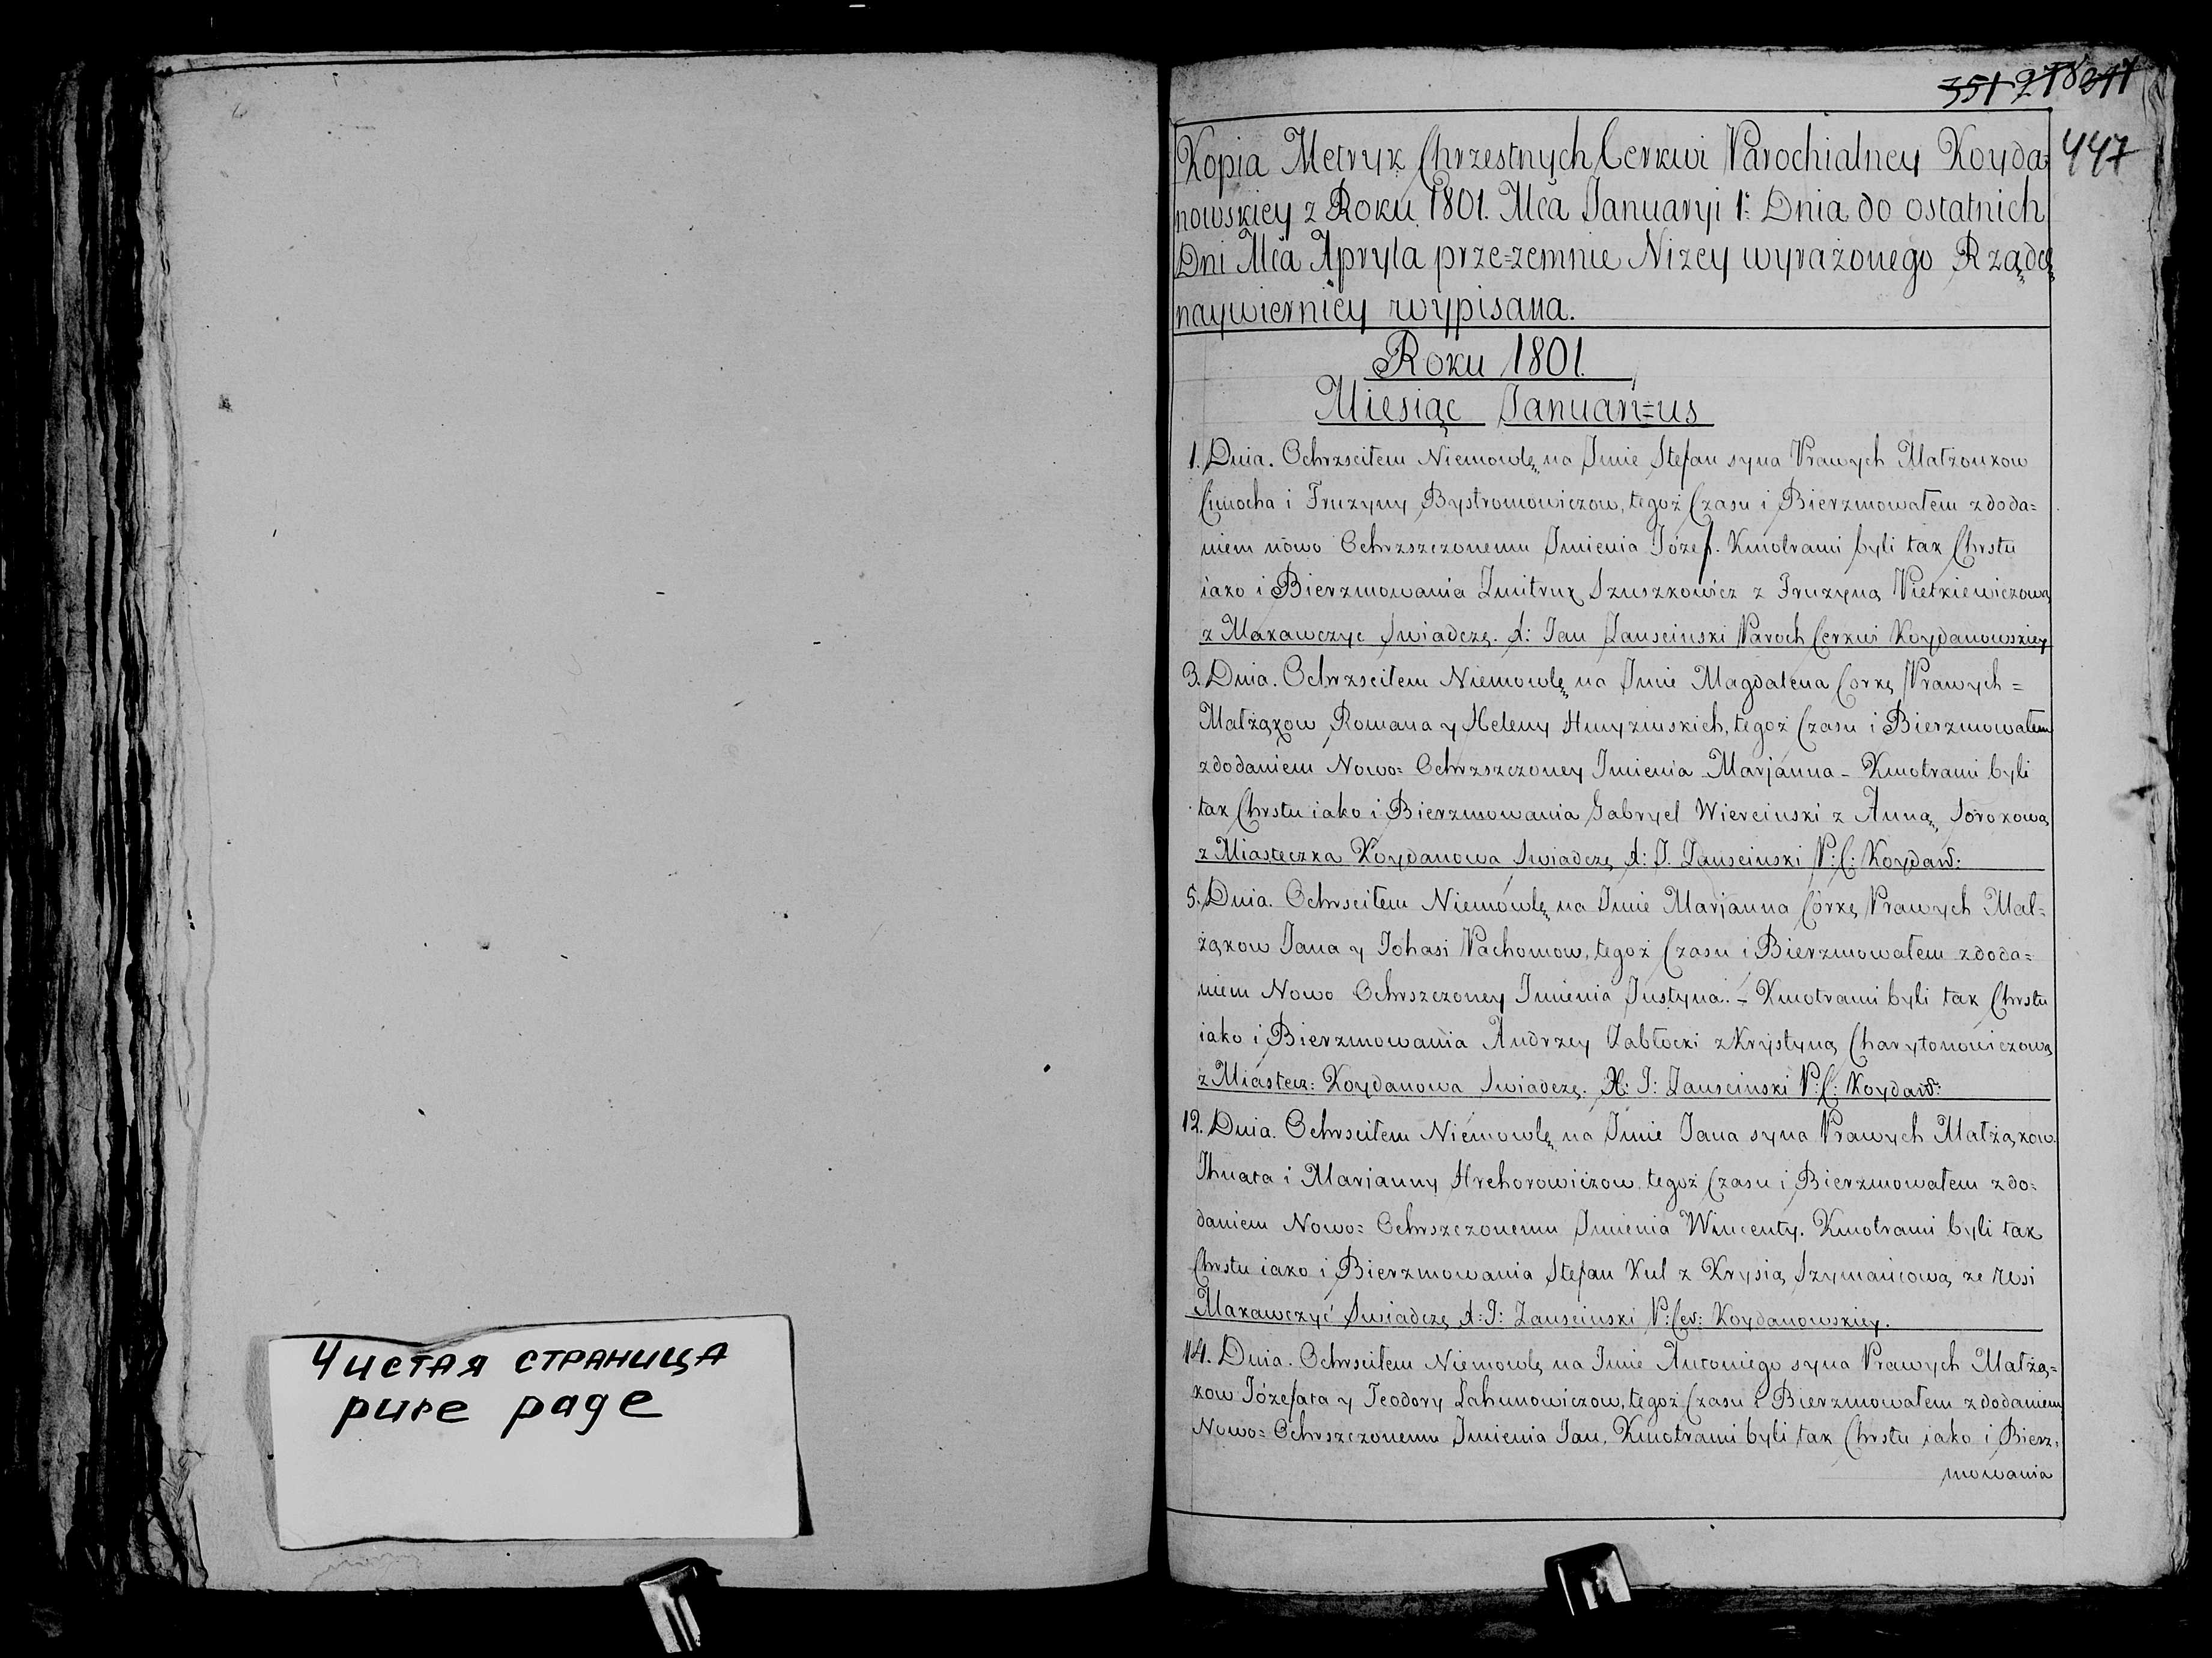 Чистая страница
pure page
351 278 317
447
Kopia Metryk Chrzestnych Cerkwi Parochialney Koyda=
nowskiey z Roku 1801. Mca Januaryi 1: Dnia do ostatnich
Dni Mca Apryla prze=zemnie Nizey wyrażonego Rządcę
naywierniey wypisana.
Roku 1801.
Miesiąc Januari=us
1. Dnia. Ochrzsciłem Niemowlę na Jmie Stefan syna Prawych Małżonkow
Cimocha i Fruzyny Bystromowiczow, tegoż Czasu i Bierzmowałem zdoda=
niem nowo Ochrzszczonemu Jmienia Józef. Kmotrami byli tak Chrstu
iako i Bierzmowania Dmitruk Szuszkowicz z Fruzyną Pietkiewiczową
z Makawczyc Swiadczę. X: Jan Zausciński Paroch Cerkwi Koydanowskiey
3. Dnia. Ochrzsciłem Niemowlę na Jmie Magdalena Corkę Prawych=
Małżąkow Romana y Heleny Hmyzinskich, tegoż Czasu i Bierzmowałem
zdodaniem Nowo= Ochrzszczoney Jmienia Marjanna - Kmotrami byli
tak Chrstu iako i Bierzmowania Gabryel Wierciński z Anną Sorokową
z Miasteczka Koydanowa Swiadczę X: J. Zausciński P: C: Koydaw:
5. Dnia. Ochrsciłem Niemówlę na Jmie Marjanna Córkę Prawych Mał=
żąkow Jana y Johasi Pachomow, tegoż Czasu i Bierzmowałem zdoda=
niem Nowo Ochrszczoney Jmienia Justyna. - Kmotrami byli tak Chrstu
iako i Bierzmowania Andrzey Zabłocki z Krystyną Charytonowiczową
z Miastecz: Koydanowa Swiadczę. X: J: Zausciński P: C: Koydaw:
12. Dnia. Ochrsciłem Niemowlę na Jmie Jana syna Prawych Małżąkow
Jhnata i Marianny Hrehorowiczow tegoż Czasu i Bierzmowałem zdo=
daniem Nowo= Ochrszczonemu Jmienia Wincenty. Kmotrami byli tak
Chrstu iako i Bierzmowania Stefan Kul z Krysią Szymańcową ze wsi
Makawczyć Swiadczę X: J: Zausciński P: Cer: Koydanowskiey.
14. Dnia. Ochrsciłem Niemowlę na Jmie Antoniego syna Prawych Małżą=
kow Józefata y Teodory Lahunowiczow, tegoż Czasu i Bierzmowałem zdodaniem
Nowo= Ochrszczonemu Jmienia Jan. Kmotrami byli tak Chrstu iako i Bierz=
mowania